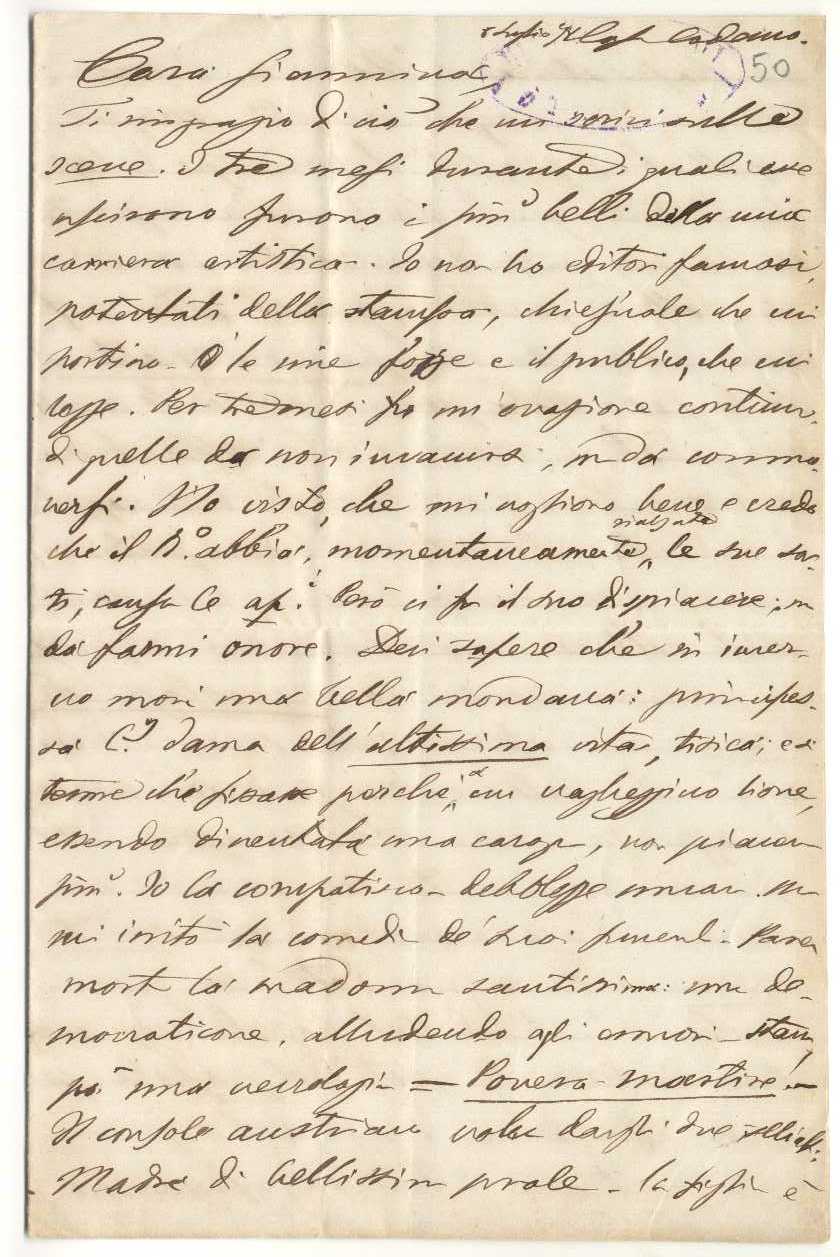 50
Cara Giannina
Ti ringrazio di ciò che mi scrivi sulle
scene. I tre mesi durante i quali esse
uscirono furono i più belli della mia
carriera artistica. Io non ho editori famosi,
potentati della stampa, chiesuole che mi
portino. le mie forze e il publico, che mi
legge. Per tre mesi fu un'ovazione continua
di quelle da non invanirsi, ma da commo-
versi. Ho visto, che mi vogliono bene e credo
che il abbia, momentaneamente, rialzate le sue sor-
ti, causa le Però ci fu il suo dispiacere; ma
da farmi onore. Devi sapere che in inver-
no morì una bella mondana: principes-
sa dama dell'altissima vita, tisica; e si
perchè, a un vagheggino
essendo diventata una non piaceva
più. Io la compatisco debolezze umane. Ma
mi irritò la comedia de' suoi funerali. Pareva
morta la madonna santissima: un de-
mocraticone, alludendo agli amori stam-
pò una necrologia = Povera martire! -
Il console austriaco volle dargli due
Madre di bellissima prole - la figlia è